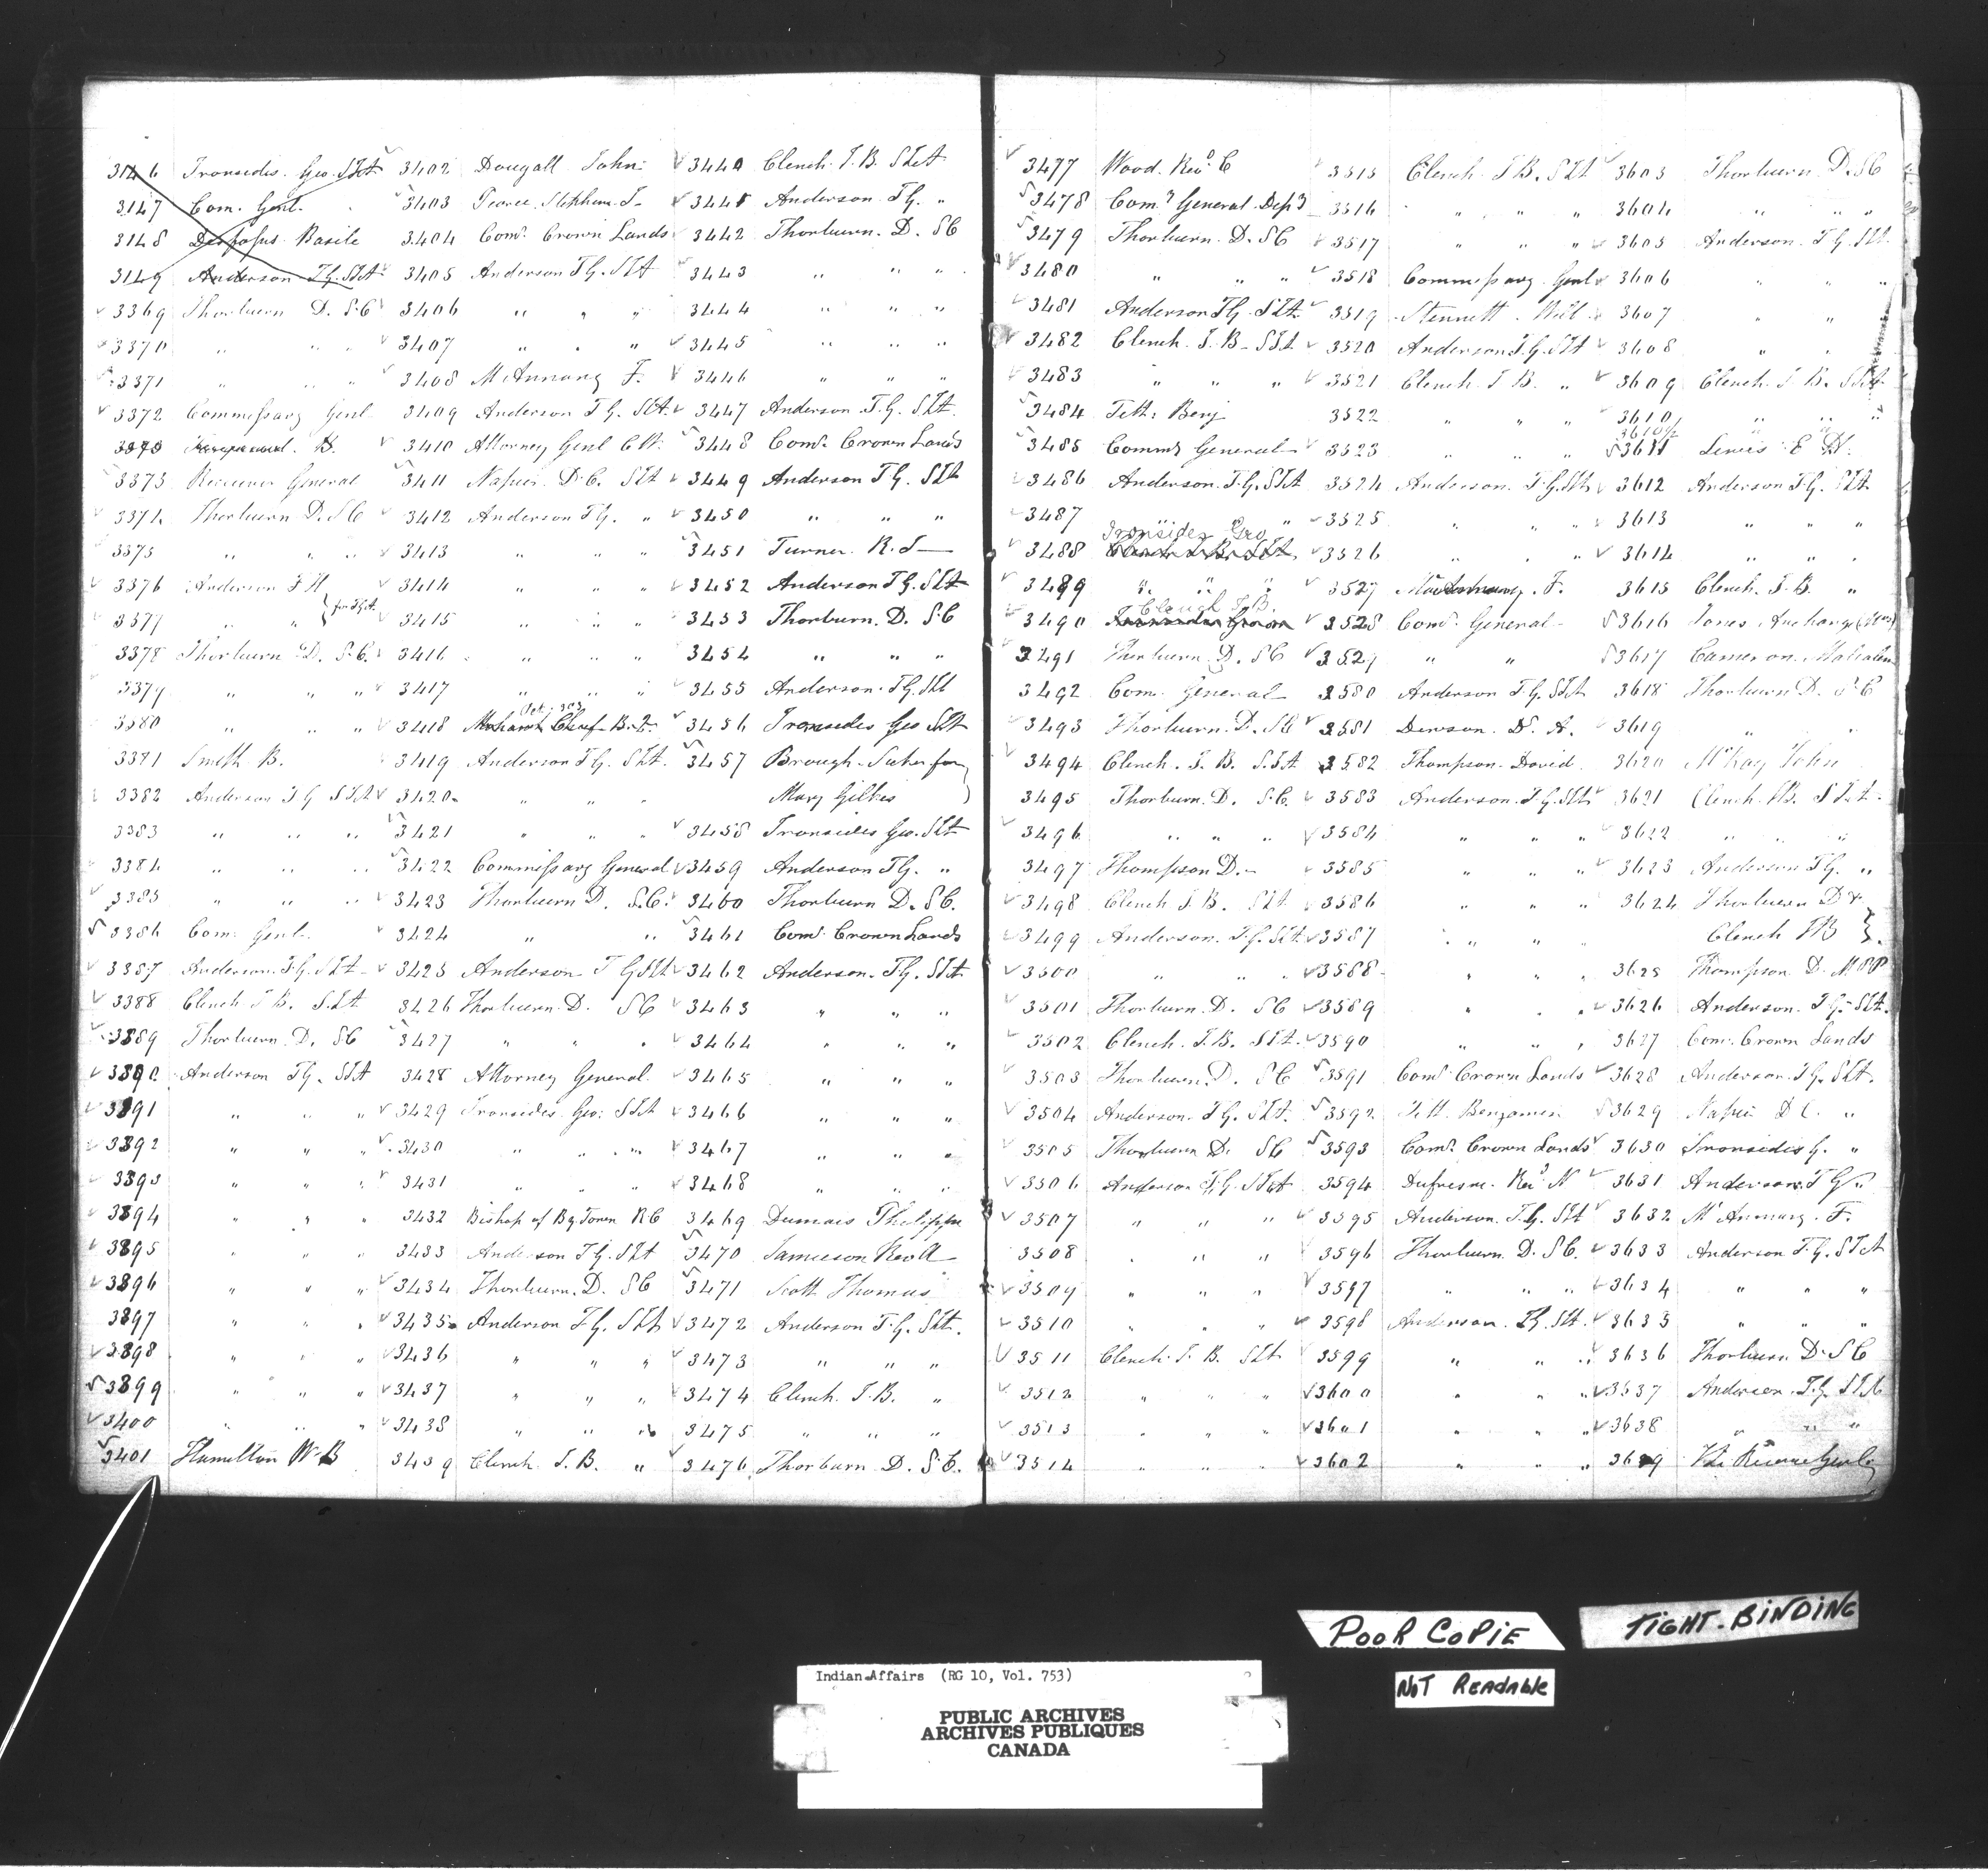 3146 Ironsides. Geo. SIA
3147 Com. Genl.
3148 Basile
3149 Anderson T.G. SIA
3369 Thorburn D. S.C
3370 " " "
3371 " " "
3372 Commissary Genl
3373 Receiver General
3374 Thorburn D. S.C
3375 " " "
3376 Anderson F H
3377 " " } for T.G.A.
3378 Thorburn D. S.C.
3379 " " "
3380 " " "
3381 Smith B.
3382 Anderson T G SIA
3383 " " "
3384 " " "
3385 " " "
3386 Com. Genl.
3387 Anderson. T.G. SIA
3388 Clench J B. SIA
3389 Thorburn D. SC
3390 Anderson T.G. SIA
3391 " " "
3392 " " "
3393 " " "
3394 " " "
3395 " " "
3396 " " "
3397 " " "
3398 " " "
3399 " " "
3400 " " "
3401 Hamilton W. B
3402 Dougall John
3403 Pearce Stephen J
3404 Comr. Crown Lands
3405 Anderson T G. SIA
3406 " " "
3407 " " "
3408 McAnnany F.
3409 Anderson T G. SIA
3410 Attorney Genl
3411 Napier D.C. SIA
3412 Anderson T G. "
3413 " " "
3414 " " "
3415 " " "
3416 " " "
3417 " " "
3418 Mohawk Chief
3419 Anderson T G. SIA
3420 " " "
3421 " " "
3422 Commissary General
3423 Thorburn D. S.C.
3424 " "
3425 Anderson T G SIA
3426 Thorburn D. SC
3427 " " "
3428 Attorney General
3429 Ironsides Geo. SIA
3430 " " "
3431 " " "
3432 Bishop of Bytown RC
3433 Anderson T.G. SIA
3434 Thorburn. D. SC
3435 Anderson T.G. SIA
3436 " " "
3437 " " "
3438 " " "
3439 Clench J.B. "
3440 Clench J.B. SIA
3441 Anderson T.G. "
3442 Thorburn. D. SC
3443 " " "
3444 " " "
3445 " " "
3446 " " "
3447 Anderson T.G. SIA.
3448 Comr. Crown Lands
3449 Anderson T G. SIA
3450 " " "
3451 Turner R. J
3452 Anderson T G. SIA
3453 Thorburn. D. SC
3454 " " "
3455 Anderson. T.G. SIA
3456 Ironsides Geo SIA
3457 Brough for }
Mary Gilkes
3458 Ironsides Geo. SIA
3459 Anderson T G. "
3460 Thorburn D. SC.
3461 Comr. Crown Lands
3462 Anderson. T.G. SIA
3463 " " "
3464 " " "
3465 " " "
3466 " " "
3467 " " "
3468 " " "
3469 Dumais Philippe
3470 Jamieson Revd A
3471 Scott Thomas
3472 Anderson T.G. SIA.
3473 " " "
3474 Clench J.B. "
3475 " " "
3476 Thorburn D. S.C.
3477 Wood. Revd. C
3478 Comy General Dept
3479 Thorburn. D. SC
3480 " " "
3481 Anderson T G. SIA
3482 Clench. J.B. SIA
3483 " " "
3484 Tett: Benj
3485 Commy General
3486 Anderson. T.G. SIA
3487 " "
Ironsides Geo
3488 Clench J.B. SIA
3489 " " "
Clench J.B.
3490 Ironsides George
3491 Thorburn. D. SC
3492 Com. General
3493 Thorburn. D. SC
3494 Clench. J. B. SIA
3495 Thorburn. D. S.C.
3496 " " "
3497 Thompson D.
3498 Clench J.B. SIA
3499 Anderson. T.G. SIA
3500 " " "
3501 Thorburn. D. SC
3502 Clench. J.B. SIA
3503 Thorburn. D. SC
3504 Anderson T.G. SIA.
3505 Thorburn D. SC
3506 Anderson T.G. SIA
3507 " " "
3508 " " "
3509 " " "
3510 " " "
3511 Clench J. B. SIA
3512 " " "
3513 " " "
3514 " " "
3515 Clench J B. SIA
3516 " " "
3517 " " "
3518 Commissary Genl
3519 Stennett Wm
3520 Anderson T.G. SIA
3521 Clench J B. "
3522 " "
3523 " " "
3524 Anderson. T.G. SIA
3525 " " "
3526 " " "
3527 F.
3528 Comr. General
3529 " "
3580 Anderson T.G. SIA
3581 Dewson. A.
3582 Thompson. David
3583 Anderson. T.G. SIA
3584 " " "
3585 " " "
3586 " " "
3587 " " "
3588 " " "
3589 " "
3590 " " "
3591 Comr. Crown Lands
3592 Tett. Benjamin
3593 Comr. Crown Lands
3594 Dufresne. Revd N
3595 Anderson. T.G. SIA
3596 Thorburn. D. SC.
3597 " " "
3598 Anderson. T.G. SIA.
3599 " " "
3600 " " "
3601 " " "
3602 " " "
3603 Thorburn. D. SC
3604 " " "
3605 Anderson. T G. SIA
3606 " "
3607 " "
3608 "
3609 Clench J. B. SIA
3610 " " "
3610½ " "
3611 Lewis E H.
3612 Anderson T.G. SIA
3613 " " "
3614 " " "
3615 Clench. J.B. "
3616 Jones
3617 Cameron Malcolm
3618 Thorburn D. SC
3619 " "
3620 McKay John
3621 Clench JB. SIA.
3622 " " "
3623 Anderson T G. "
3624 Thorburn D &
Clench JB }
3625 Thompson D. MPP
3626 Anderson. T.G. SIA.
3627 Com. Crown Lands
3628 Anderson. T.G. SIA.
3629 Napier D C. "
3630 Ironsides G. "
3631 Anderson. T G.
3632 McAnnany. F.
3633 Anderson T.G. SIA
3634 " " "
3635 " " "
3636 Thorburn D. SC
3637 Anderson. T.G. SIA
3638 " "
3639 Genl
POOR COPIE
TIGHT-BINDING
NOT READABLE
Indian Affairs (RG 10, Vol. 753)
PUBLIC ARCHIVES
ARCHIVES PUBLIQUES
CANADA